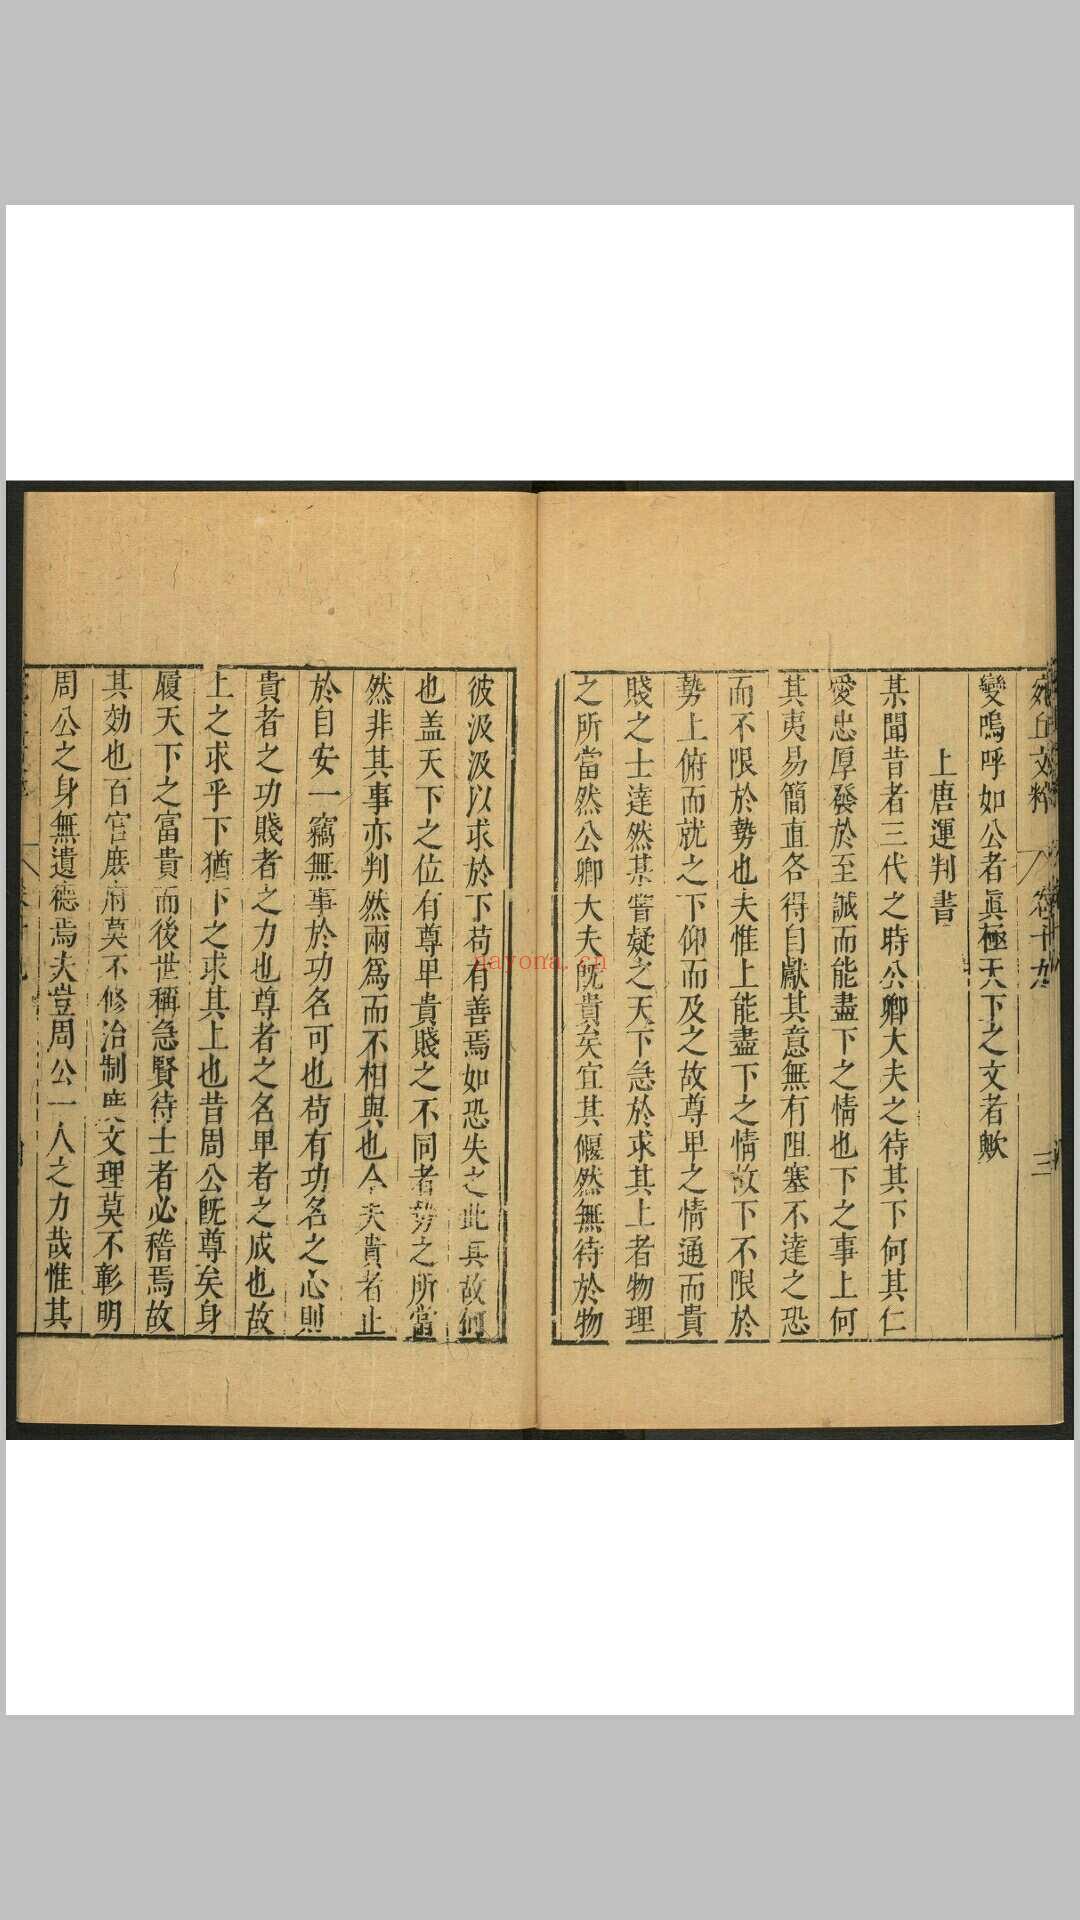 宛丘文粹 卷十九 三
變嗚呼如公者眞極天下之文者歟
上唐運判書
某聞昔者三代之時公卿大夫之待其下何其仁
愛忠厚發於至誠而能盡下之情也下之事上何
其夷易簡直各得自獻其意無有阻塞不達之恐
而不限於勢也夫惟上能盡下之情故下不限於
勢上俯而就之下仰而及之故尊卑之情通而貴
賤之士達然某嘗疑之天下急於求其上者物理
之所當然公卿大夫旣貴矣宜其偃然無待於物
彼汲汲以求於下苟有善焉如恐失之此其故何
也盖天下之位有尊卑貴賤之不同者勢之所當
然非其事亦判然兩爲而不相與也今夫貴者止
於自安一竊無事於功名可也苟有功名之心則
貴者之功賤者之力也尊者之名卑者之成也故
上之求乎下猶下之求其上也昔周公旣尊矣身
履天下之富貴而後世稱急賢待士者必稽焉故
其効也百官庶府莫不修治制度文理莫不彰明
周公之身無遺德焉夫豈周公一人之力哉惟其
nayona.cn